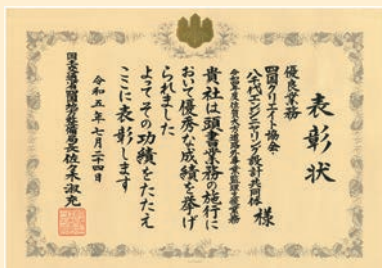 表彰状
優良業務
四国クリエイト協会・
八千代エンジニヤリング設計共同体 様
貴社は頭書業務の施行に
おいて優秀な成績を挙げ
られました
よってその功績をたたえ
ここに表彰します
令和五年七月二十四日
国土交通省四国地方整備局長佐々木淑充